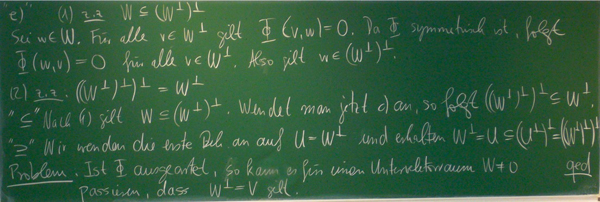 "e)" (1) z.z W ⊆ (W^⊥)^⊥
Sei w∈W. Für alle v∈W^⊥ gilt Φ(v,w)=0. Da Φ symmetrisch ist, folgt
Φ(w,v)=0 für alle v∈W^⊥. Also gilt w∈(W^⊥)^⊥.
(2) z.z. ((W^⊥)^⊥)^⊥ = W^⊥
"⊆" Nach (1) gilt W ⊆ (W^⊥)^⊥. Wendet man jetzt c) an, so folgt ((W^⊥)^⊥)^⊥ ⊆ W^⊥.
"⊇" Wir wenden die erste Beh. an auf U=W^⊥ und erhalten W^⊥=U⊆(U^⊥)^⊥=((W^⊥)^⊥)^⊥
Problem. Ist Φ ausgeartet, so kann es für einen Untervektorraum W≠0 qed
passieren, dass W^⊥=V gilt.